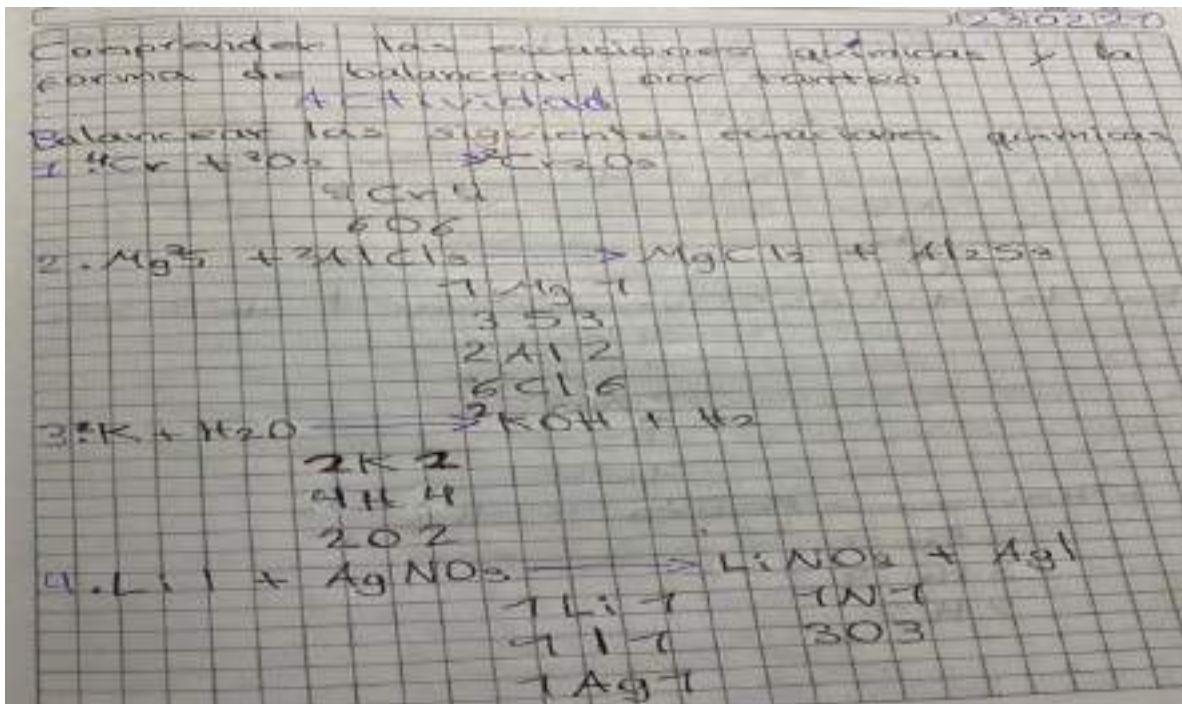 Comprender las ecuaciones químicas y la
forma de balancear por tanteo
Actividad
Balancear las siguientes ecuaciones químicas
1. 4Cr + 3O2 → 2Cr2O3
4 Cr 4
6 O 6
2. Mg3S + 2AlCl3 → MgCl2 + Al2S3
1 Mg 1
3 S 3
2 Al 2
6 Cl 6
3. 2K + H2O → 2KOH + H2
2 K 2
4 H 4
2 O 2
4. LiI + AgNO3 → LiNO3 + AgI
1 Li 1 1 N 1
1 I 1 3 O 3
1 Ag 1